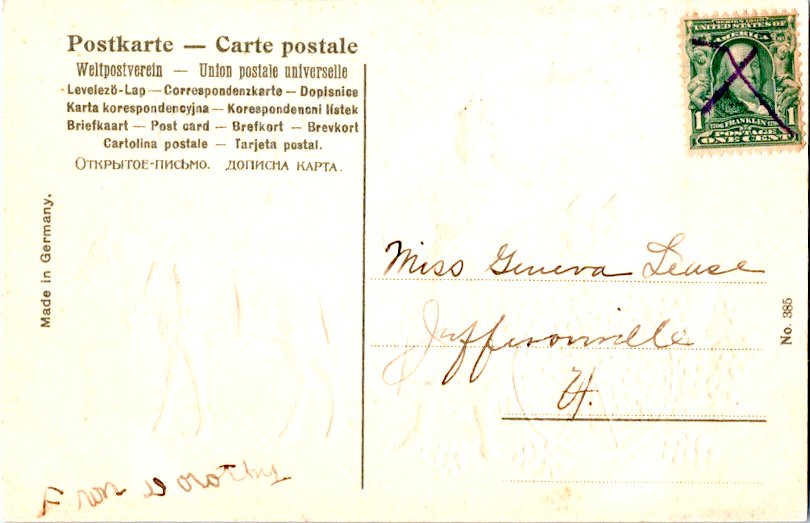 Postkarte — Carte postale
Weltpostverein — Union postale universelle
Levelező-Lap — Correspondenzkarte — Dopisnice
Karta korespondencyjna — Korespondencni listek
Briefkaart — Post card — Brefkort — Brevkort
Cartolina postale — Tarjeta postal.
Открытое-письмо. дописна карта.
Made in Germany.
From Dorothy
SERIES 1902
UNITED STATES OF
AMERICA
1 FRANKLIN 1
POSTAGE
ONE CENT
Miss Geneva Lease
Jeffersonville
No. 385